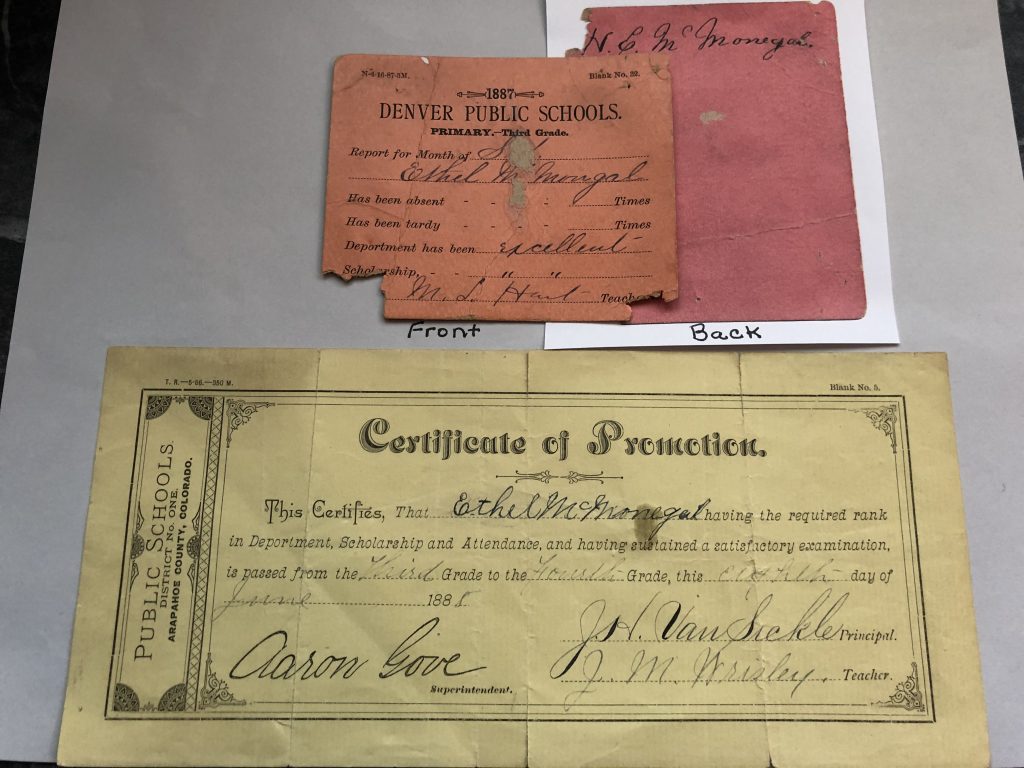 N-4-16-87-5M. Blank No. 22.
1887
DENVER PUBLIC SCHOOLS.
PRIMARY.—Third Grade.
Report for Month of
Ethel McMongal
Has been absent - - - - Times
Has been tardy - - - - Times
Department has been excellent
Scholarship, - - " "
M. L. Hart Teacher
Front
H. E. McMonegal.
Back
T. R.—5-56.—350 M. Blank No. 5.
PUBLIC SCHOOLS
DISTRICT No. ONE.
ARAPAHOE COUNTY, COLORADO.
Certificate of Promotion.
This Certifies, That Ethel McMonegal having the required rank
in Department, Scholarship and Attendance, and having sustained a satisfactory examination,
is passed from the Third Grade to the Fourth Grade, this eighth day of
June 1888
J. H. Van Sickle Principal.
Aaron Gove
Superintendent.
J. M. Wrisley. Teacher.